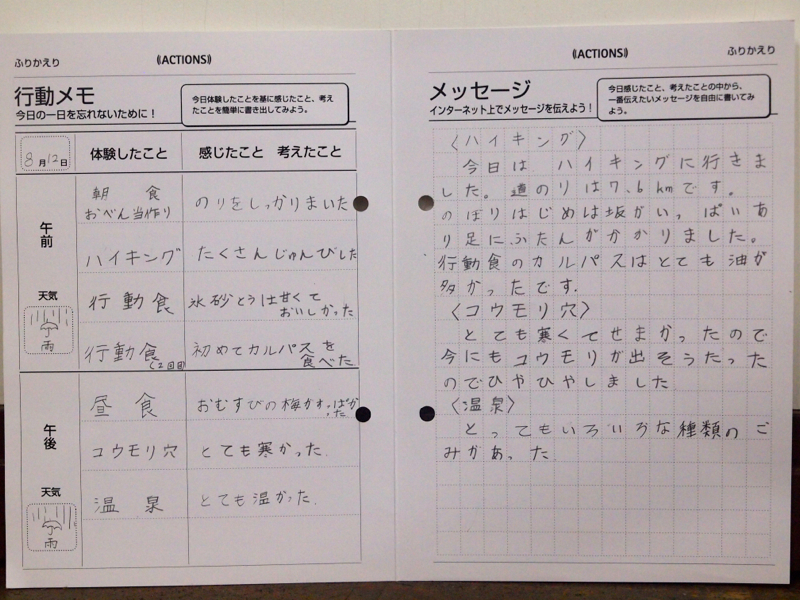 ふりかえり
((ACTIONS))
行動メモ
今日の一日を忘れないために！
今日体験したことを基に感じたこと、考え
たことを簡単に書き出してみよう。
8月12日
体験したこと
感じたこと 考えたこと
午前
天気
雨
朝食
おべん当作り
のりをしっかりまいた
ハイキング
たくさんじゅんびした
行動食
氷砂とうは甘くて
おいしかった
行動食(2回目)
初めてカルパスを
食べた
午後
天気
雨
昼食
おむすびの梅がすっぱか
った
コウモリ穴
とても寒かった.
温泉
とても温かった.
((ACTIONS))
ふりかえり
メッセージ
インターネット上でメッセージを伝えよう！
今日感じたこと、考えたことの中から、
一番伝えたいメッセージを自由に書いてみ
よう。
〈ハイキング〉
今日は ハイキングに行きま
した。道のりは7.6kmです。
のぼりはじめは坂がいっぱいあ
り足にふたんがかかりました。
行動食のカルパスはとても油が
多かったです.
〈コウモリ穴〉
とても寒くてせまかったので
今にもコウモリが出そうだった
のでひやひやしました
〈温泉〉
とってもいろいろな種類のご
みがあった